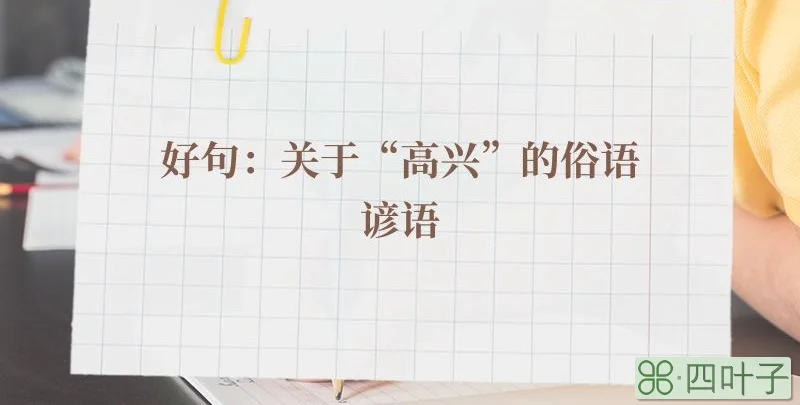 好句：关于“高兴”的俗语
谚语
四叶子